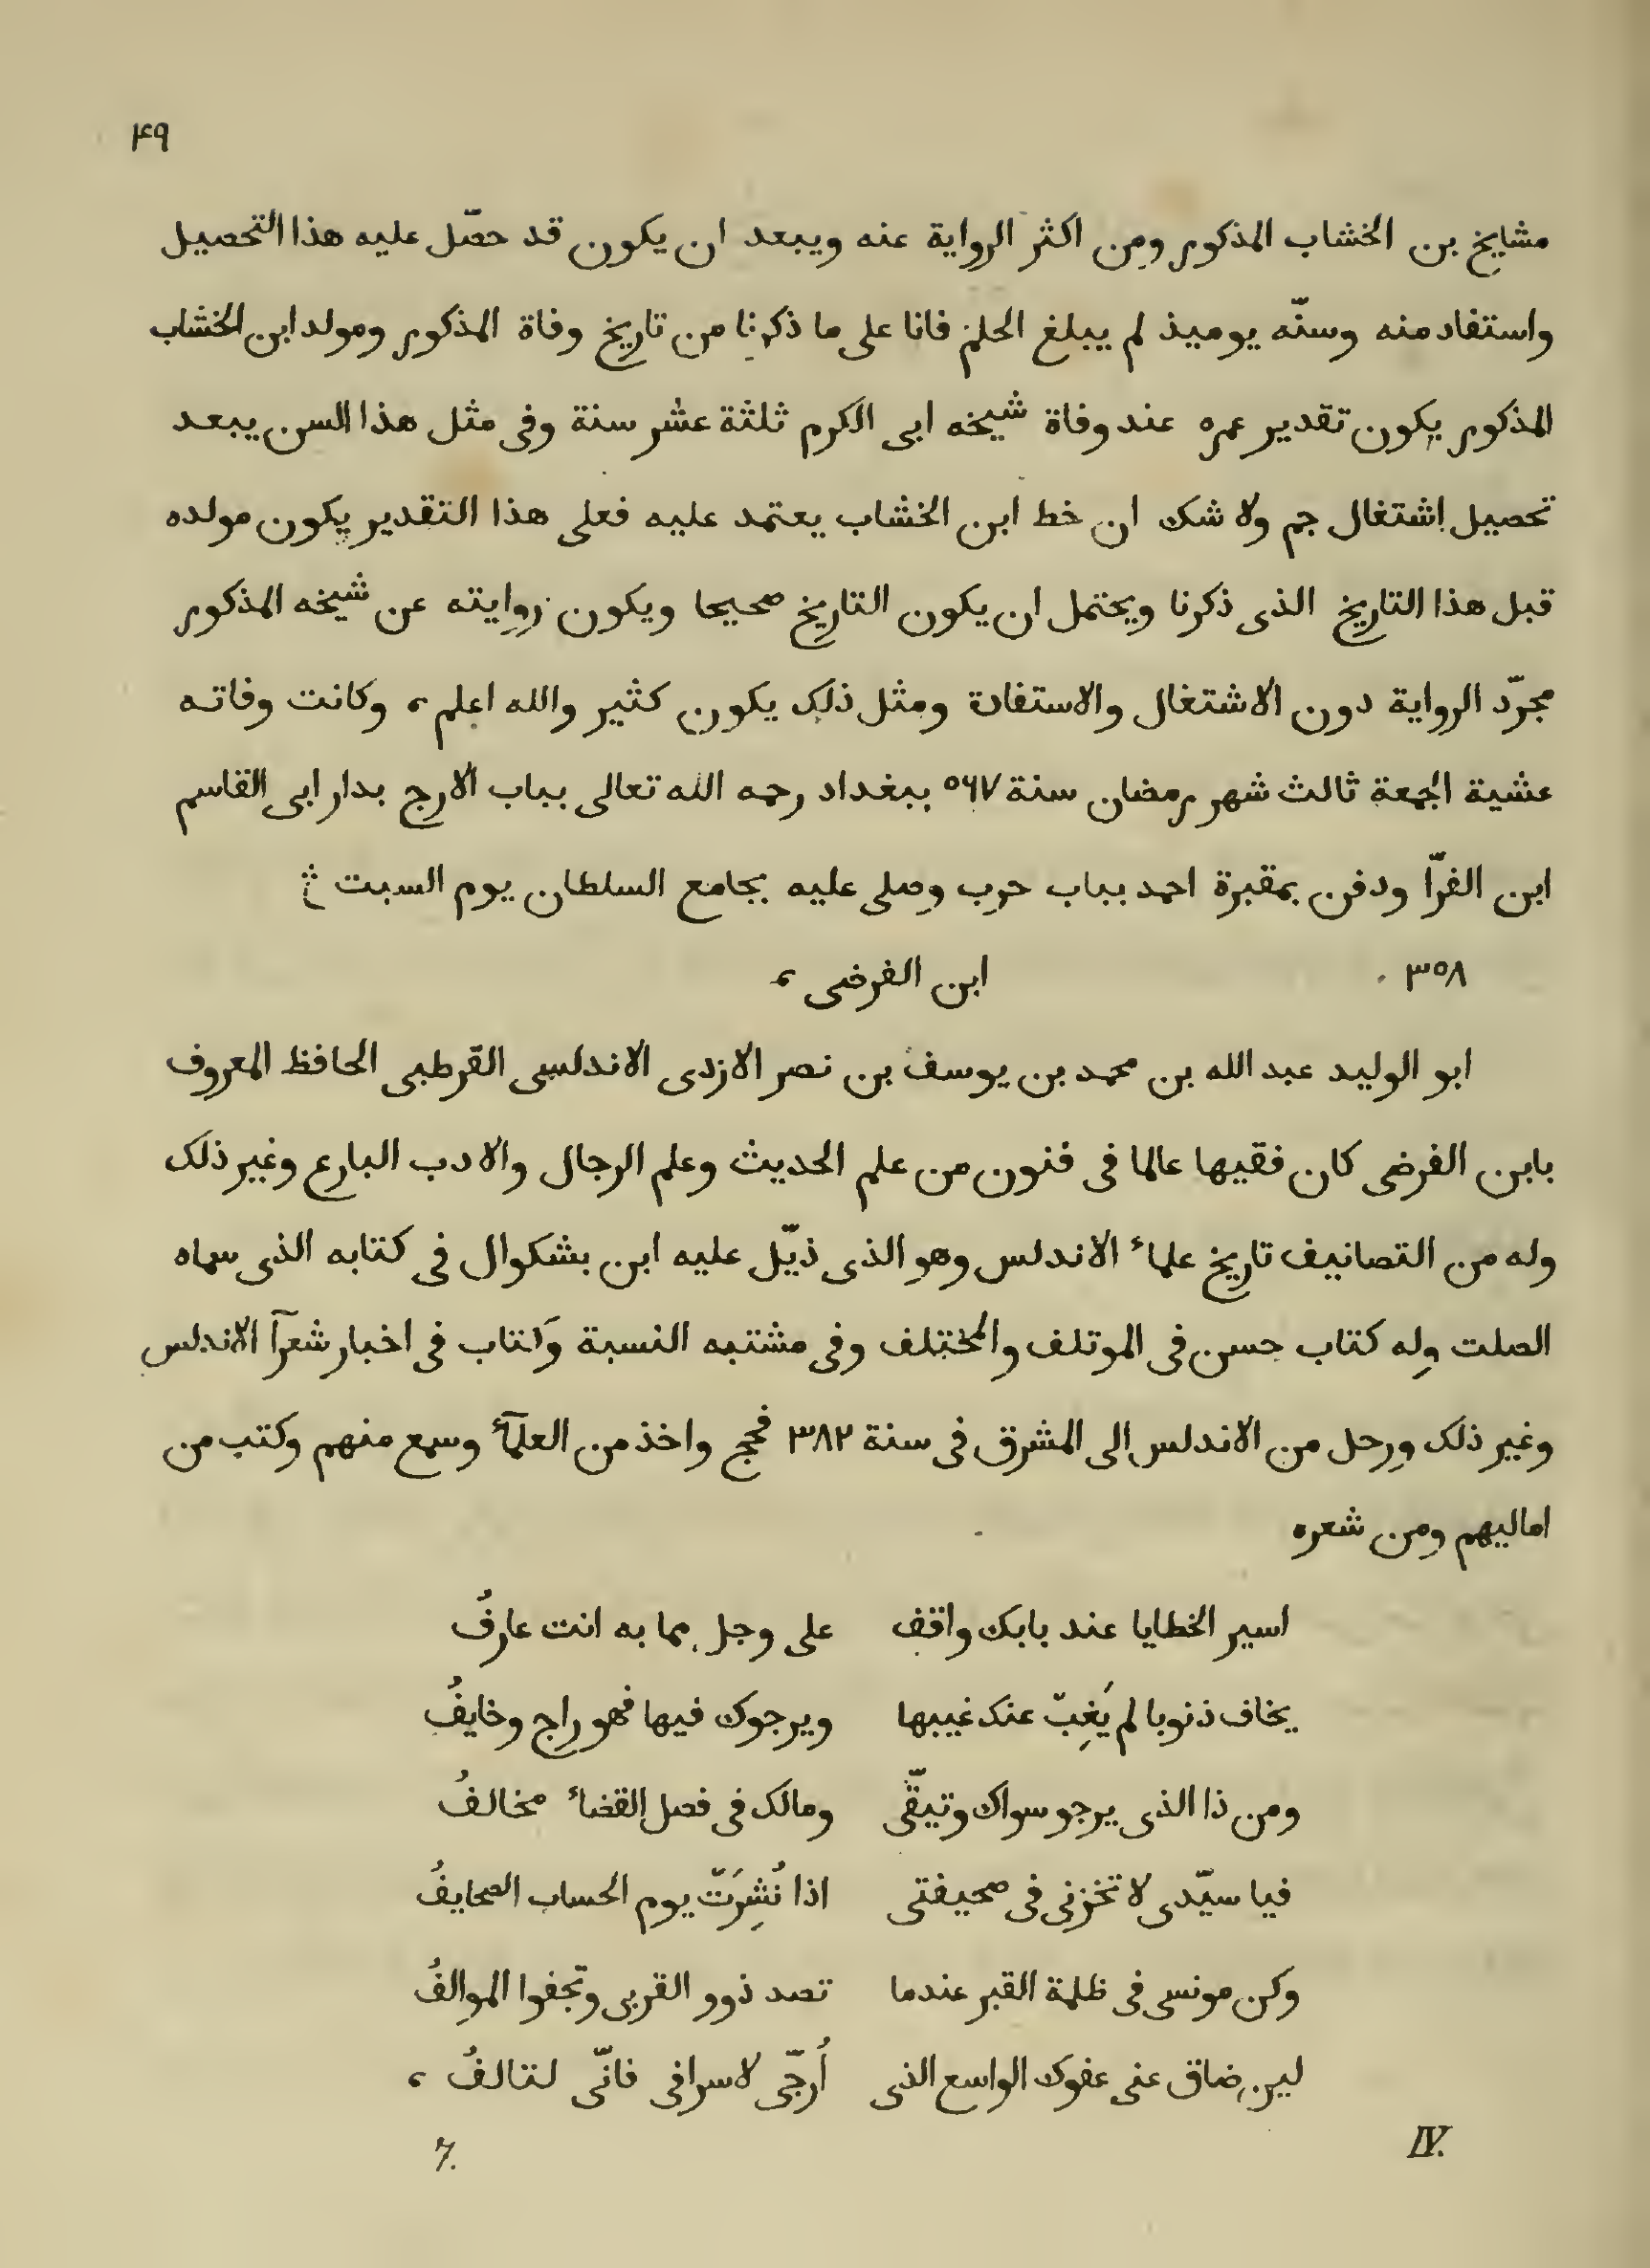 ۴۹
مشايخ بن الخشاب المذكور ومن اكثر الرواية عنه ويبعد ان يكون قد حصّل عليه هذا التحصيل
واستفاد منه وسنّه يوميذ لم يبلغ الحلم فانا على ما ذكرنا من تاريخ وفاة المذكور ومولد ابن الخشاب
المذكور يكون تقدير عمره عند وفاة شيخه ابى الكرم ثلثة عشر سنة وفى مثل هذا السن يبعد
تحصيل اشتغال جم ولا شك ان خط ابن الخشاب يعتمد عليه فعلى هذا التقدير يكون مولده
قبل هذا التاريخ الذى ذكرنا ويحتمل ان يكون التاريخ صحيحا ويكون روايته عن شيخه المذكور
مجرّد الرواية دون الاشتغال والاستفادة ومثل ذلك يكون كثير والله اعلم، وكانت وفاته
عشية الجمعة ثالث شهر رمضان سنة ٥٦٧ ببغداد رحمه الله تعالى بباب الارج بدار ابى القاسم
ابن الفرّا ودفن بمقبرة احمد بباب حرب وصلى عليه بجامع السلطان يوم السبت
٣٥٨ ابن الفرضى،
ابو الوليد عبد الله بن محمد بن يوسف بن نصر الازدى الاندلسى القرطبى الحافظ المعروف
بابن الفرضى كان فقيها عالما فى فنون من علم الحديث وعلم الرجال والادب البارع وغير ذلك
وله من التصانيف تاريخ علماء الاندلس وهو الذى ذيّل عليه ابن بشكوال فى كتابه الذى سماه
الصلت وله كتاب حسن فى الموتلف والمختلف وفى مشتبه النسبة وَكتاب فى اخبار شعرآ الاندلس
وغير ذلك ورحل من الاندلس الى المشرق فى سنة ٣٨٢ فحج واخذ من العلمآء وسمع منهم وكتب من
اماليهم ومن شعره
اسير الخطايا عند بابك واقف على وجل مما به انت عارفُ
يخاف ذنوبا لم يَغِبّ عنك غيبها ويرجوك فيها فهو راج وخايفُ
ومن ذا الذى يرجو سواك وتيقّى ومالك فى فصل القضاء مخالفُ
فيا سيّدى لا تخزنى فى صحيفتى اذا نُشِرَتّ يوم الحساب الصحايفُ
وكن مونسى فى ظلمة القبر عندما تصد ذوو القربى وتجفوا الموالفُ
لين ضاق عنى عفوك الواسع الذى أُرجّى لاسرافى فانّى لتالفُ،
IV. 7.